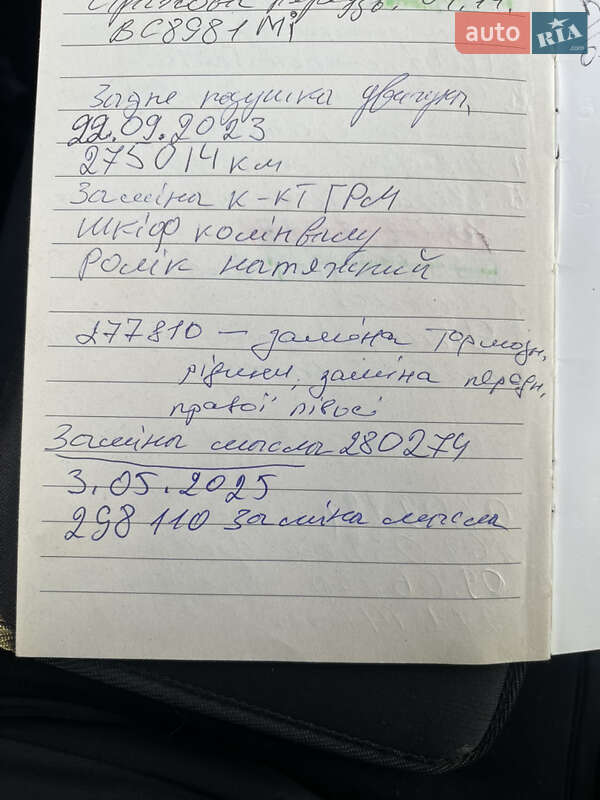 auto RIA.com
ВС8981МІ
Задне подушка двигуна,
22.09.2023
275014 км
Заміна к-кт ГРМ
шкіф колінвалу
Ролік натяжний
277810 — заміна тормозн,
рідини, заміна передн,
правої півосі
Заміна масла 280274
3.05.2025
298110 Заміна масла